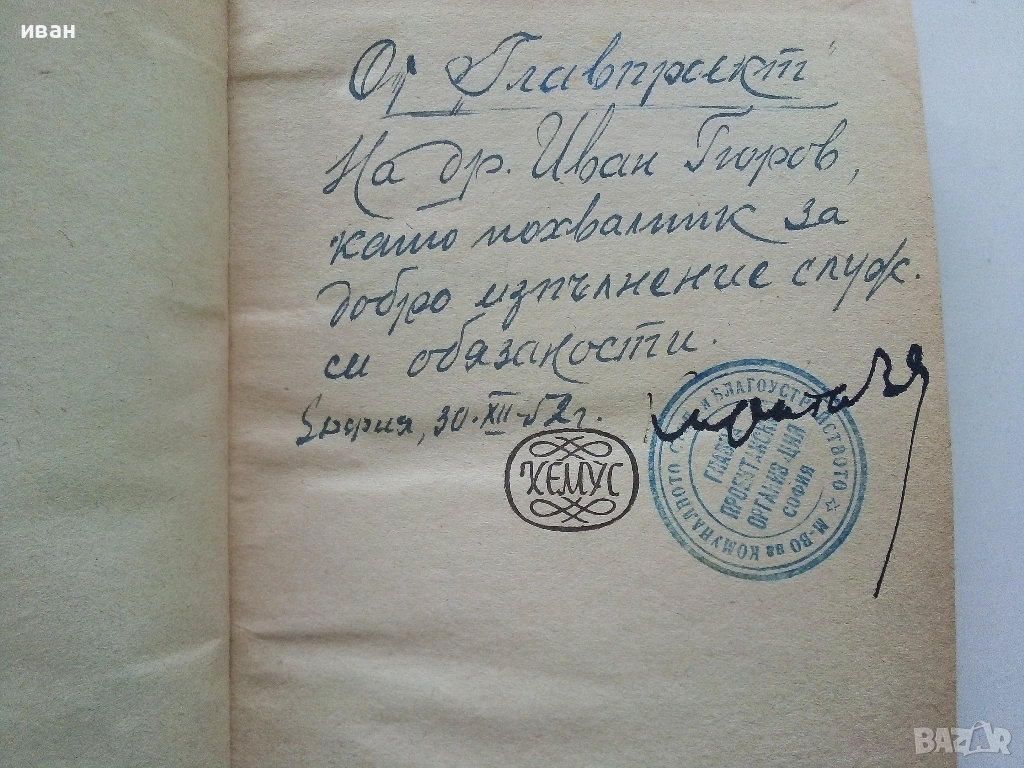 иван
От "Главпроект"
На др. Иван Гюров,
като похвалник за
добро изпълнение служ.
си обязаности.
София, 30.XII.52 г.
ХЕМУС
М-ВО на КОМУНАЛНОТО С-ВО и БЛАГОУСТРОЙСТВОТО
ГЛАВНА
ПРОЕКТАНСКА
ОРГАНИЗАЦИЯ
СОФИЯ
BAZAR